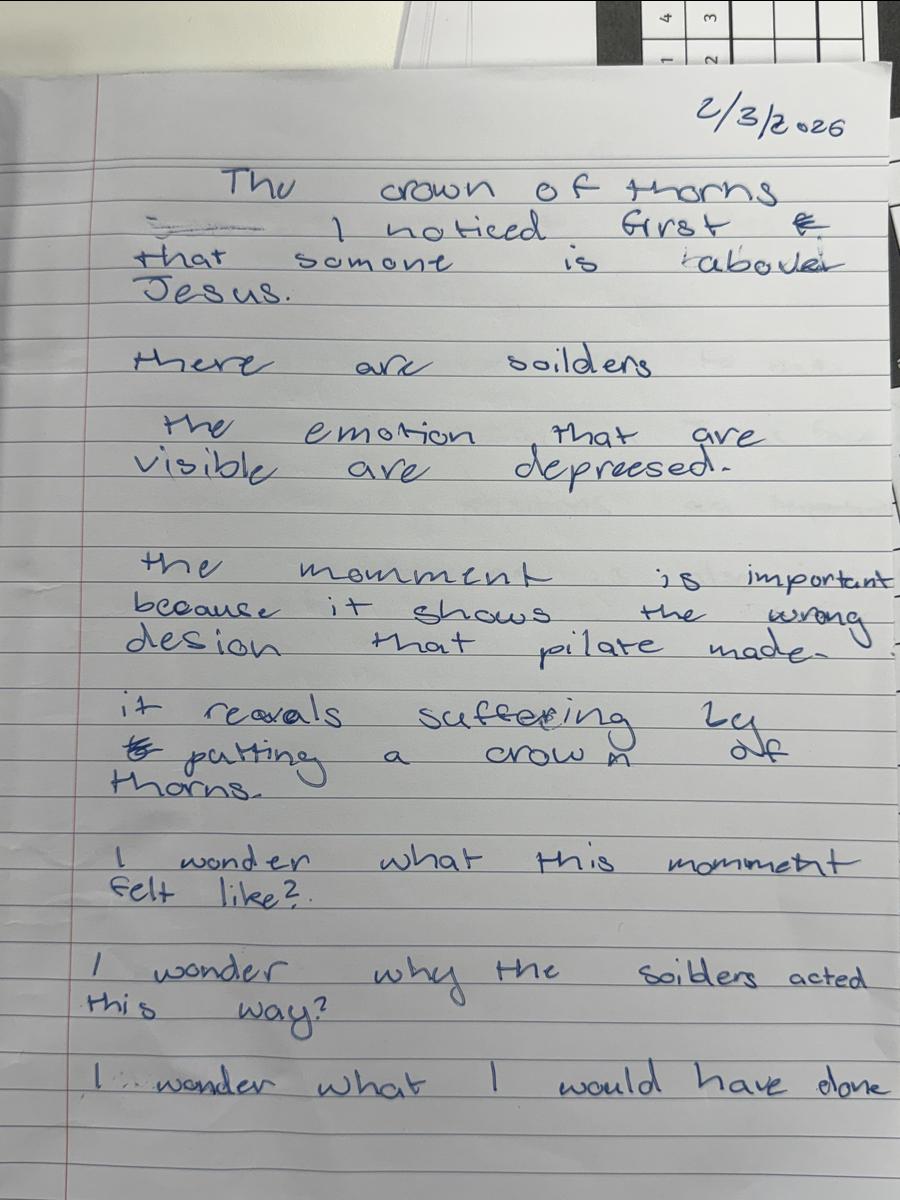 4 3
1 2
2/3/2026
The crown of thorns
I noticed first
that somone is above
Jesus.
there are soilders
the emotion that are
visible are depreesed.
the momment is important
because it shows the wrong
desion that pilate made.
it reavals suffering by
putting a crown of
thorns.
I wonder what this momment
felt like?.
I wonder why the soilders acted
this way?
I wonder what I would have done